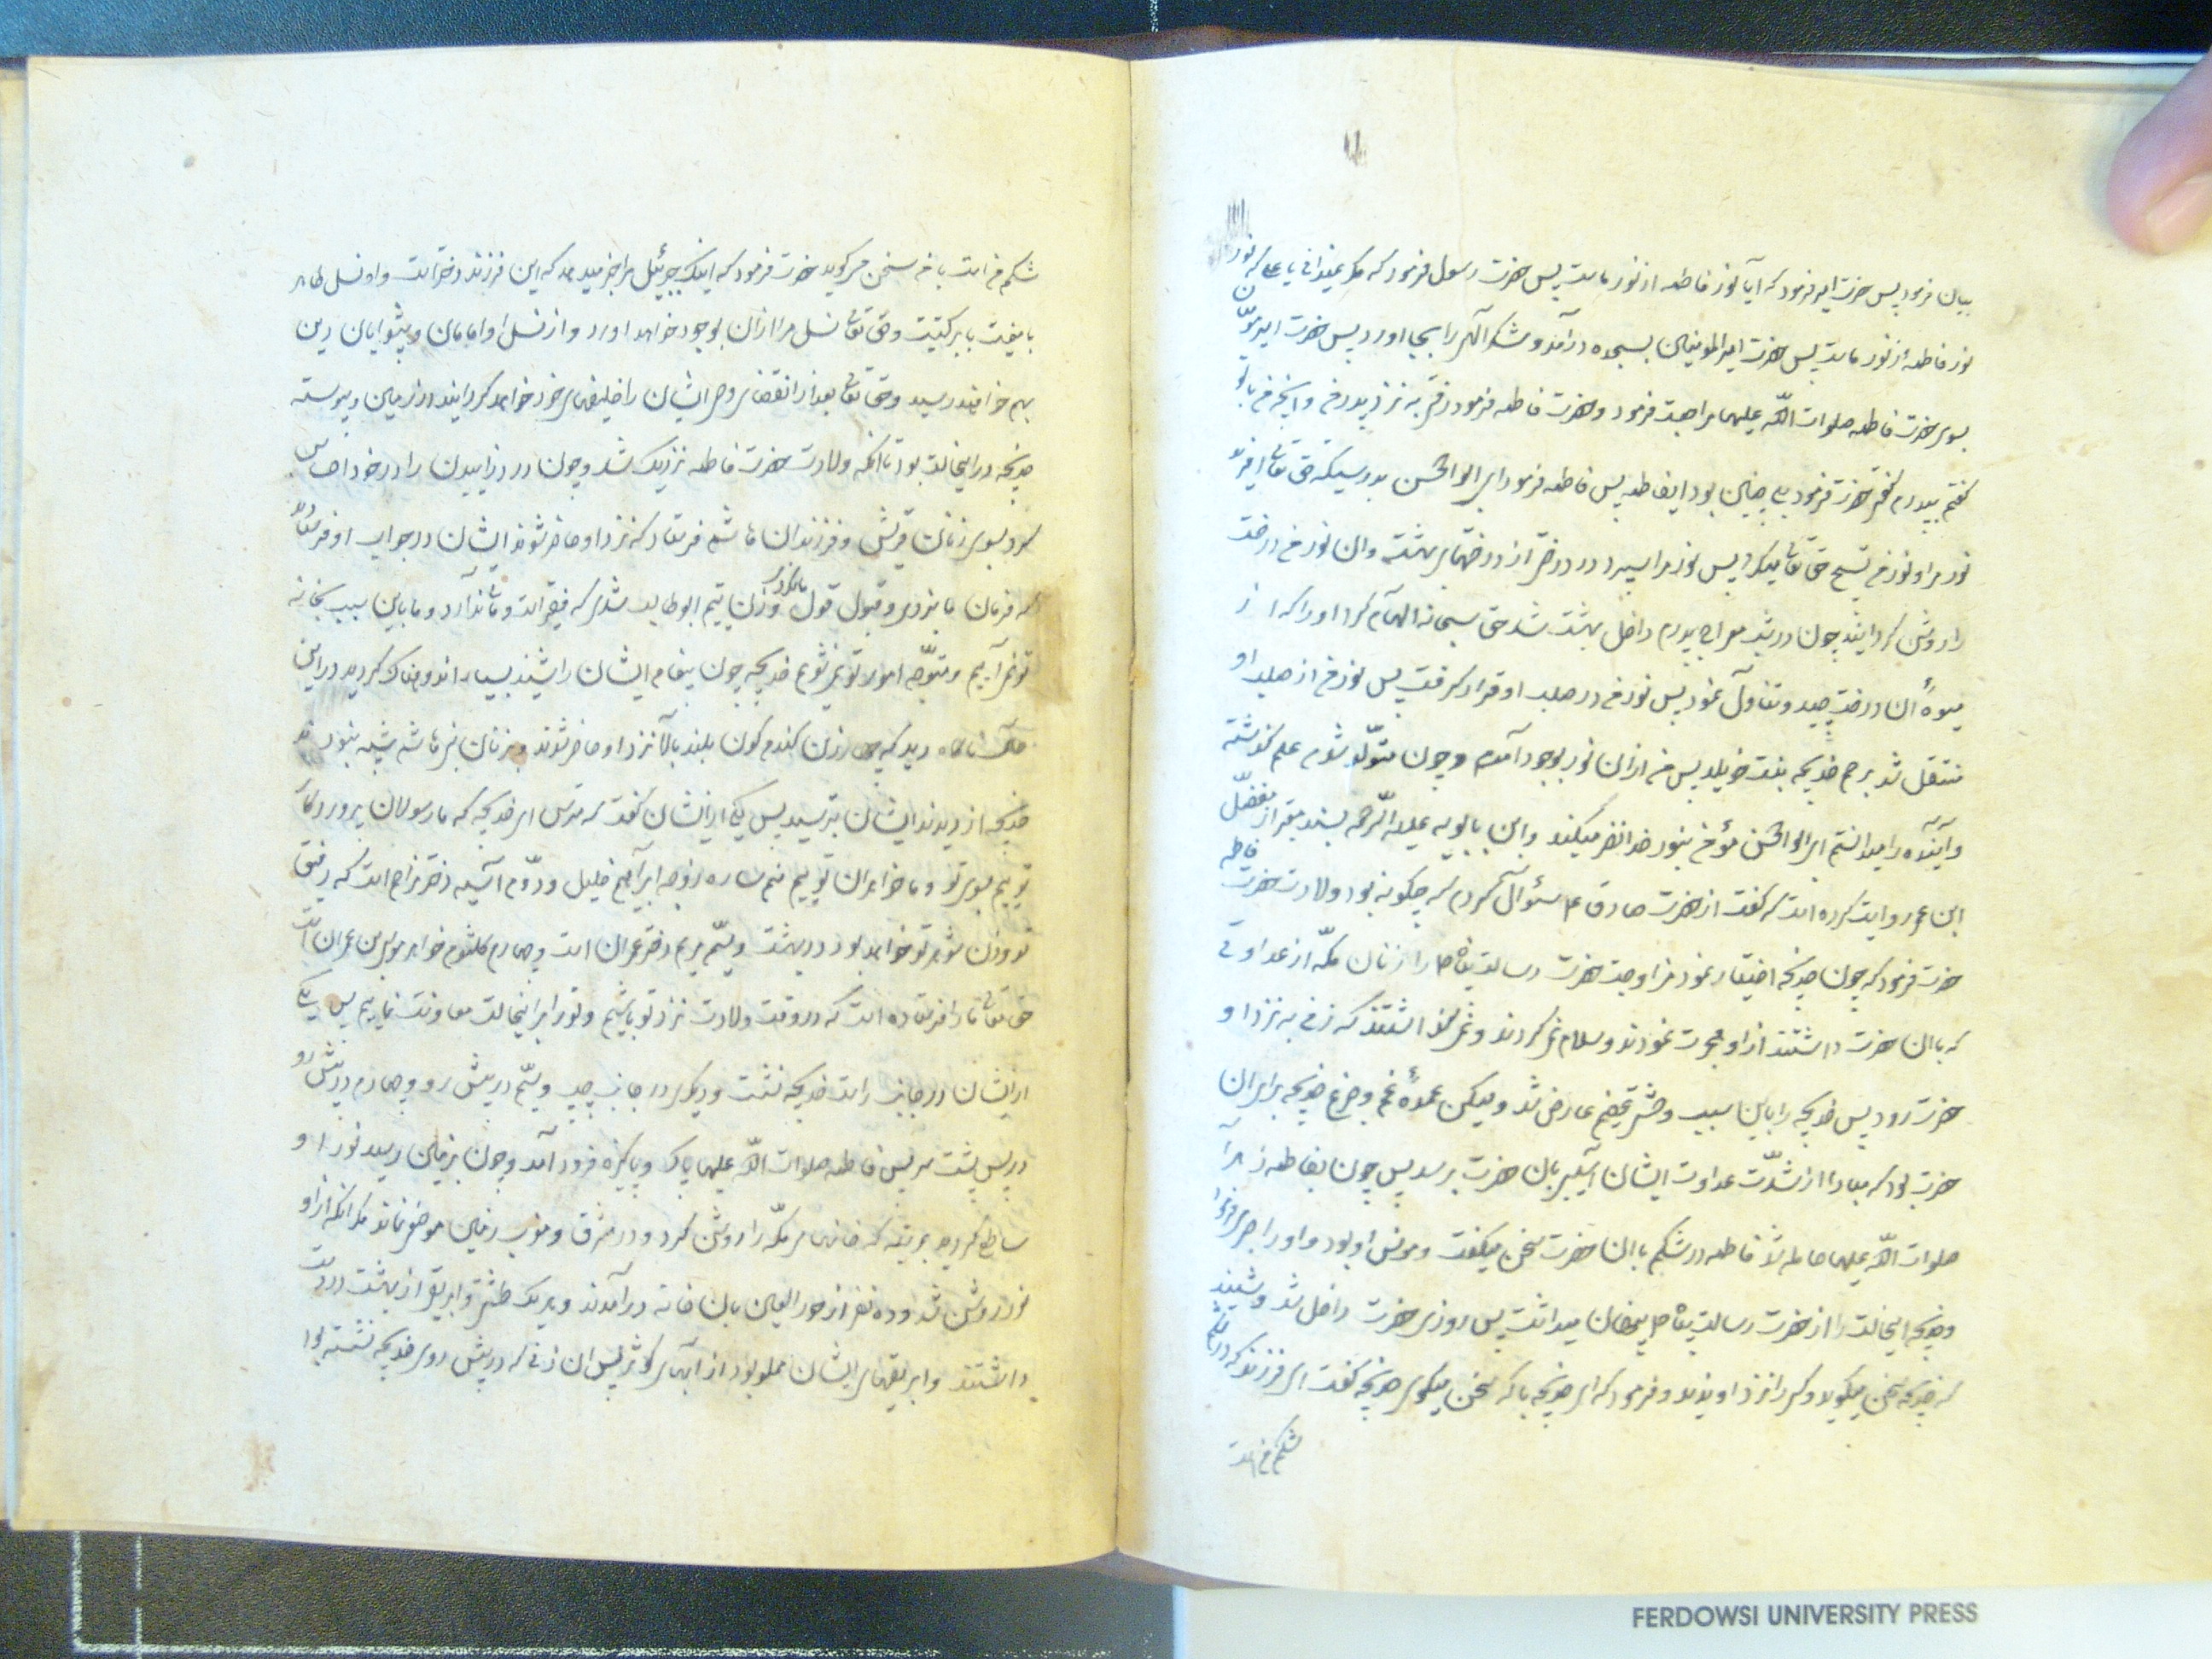 بیان فرمود پس حضرت امیر فرمود که آیا نور فاطمه از نور ماست پس حضرت رسول فرمود که مگر نمیدانی یا علی که نور
نور فاطمه از نور ماست پس حضرت امیرالمومنین بسجده درآمد و شکر الهی را بجا اورد پس حضرت امیر
بسوی حضرت فاطمه صلوات اللّه علیهما مراجعت فرمود و حضرت فاطمه فرمود رفتی به نزد پدرم و انچه من باتو
گفتم بپدرم گفتی حضرت فرمود بلی چنین بود ایفاطمه پس فاطمه فرمود ای ابوالحسن بدرستیکه حق تعالی افرید
نور مرا و نور من تسبیح حق تعالی میکرد پس نور مرا سپرد در درختی از درختهای بهشت و ان نور من درخت
را روشن گردانید چون در شب معراج پدرم داخل بهشت شد حق سبحانه الهام کرد او را که از
میوهٔ ان درخت چید و تناول نمود پس نور من در صلب او قرار گرفت پس نور من از صلب او
منتقل شد برحم خدیجه بنت خویلد پس من ازان نور بوجود آمدم و چون متولّد شدم علم گذشته
و آینده را میدانستم ای ابوالحسن مؤمن بنور خدا نظر میکند و ابن بابویه علیه الرّحمه بسند معتبر از مفضّل
ابن عمر روایت کرده است که گفت از حضرت صادق ع سئوال کردم که چگونه بود ولادت حضرت فاطمه
حضرت فرمود که چون خدیجه اختیار نمود مزاوجت حضرت رسالت پناه ص را زنان مکّه از عداوتی
که باان حضرت داشتند از او هجرت نمودند و سلام نمیکردند و نمیگذاشتند که زنی به نزد او
حضرت رود پس خدیجه را باین سبب وحشتی عظیم عارض شد و لیکن عمدهٔ غم و جزع خدیجه برای ان
حضرت بود که مبادا از شدّت عداوت ایشان آسیبی بان حضرت برسد پس چون بفاطمه زهرا
صلوات اللّه علیها حامله شد فاطمه در شکم باان حضرت سخن میگفت و مونس او بود و او را صبر میفرمود
و خدیجه اینحالت را از حضرت رسالت پناه ص پنهان میداشت پس روزی حضرت داخل شد و شنید
که خدیجه سخن میگوید و کسی را نزد او ندید و فرمود که ای خدیجه باکه سخن میگوئی خدیجه گفت ای فرزند که در
شکم من است
شکم من است با من سخن میگوید حضرت فرمود که اینک جبرئیل مرا خبر میدهد که این فرزند دختر است و او نسل طاهر
با میمنت با برکتست و حق تعالی نسل مرا ازان بوجود خواهد اورد و از نسل او امامان و پیشوایان دین
بهم خواهند رسید و حق تعالی بعد از انقضای وحی ایشان را خلیفهای خود خواهد گردانید در زمین و پیوسته
خدیجه دراینحالت بود تا انکه ولادت حضرت فاطمه نزدیک شد و چون درد زاییدن را در خود احساس
کرد بسوی زنان قریش و فرزندان هاشم فرستاد که نزد او حاضر شوند ایشان در جواب او فرستادند
که فرمان ما نبردی و قبول قول ما نکردی و زن یتیم ابوطالب شدی که فقیر است و مال ندارد و ما باین سبب بخانه
تو نمی آییم و متوّجه امور تو نمیشویم خدیجه چون پیغام ایشان را شنید بسیار اندوهناک گردید دراین
حال ناگاه دید که چهار زن گندم گون بلند بالا نزد او حاضر شدند و بزنان بنی هاشم شبیه بودند
خدیجه از دیدن ایشان بترسید پس یکی از ایشان گفت که مترس ای خدیجه که ما رسولان پروردگار
توییم بسوی تو و ما خواهران توییم منم ساره زوجه ابراهیم خلیل و دوّم آسیه دختر مزاحم است که رفیق
تو و زن شوهر تو خواهد بود در بهشت و سیّم مریم دختر عمران است و چهارم کلثوم خواهر موسی بن عمران است
حق تعالی ما را فرستاده است که در وقت ولادت نزد تو باشیم و تو را براینحالت معاونت نماییم پس یکی
از ایشان در جانب راست خدیجه نشست و دیگری در جانب چپ و سیّم در پیش رو و چهارم
در پس پشت سر پس فاطمه صلوات اللّه علیها پاک و پاکیزه فرود آمد و چون بزمین رسید نور او
ساطع گردید بمرتبه که خانهای مکّه را روشن کرد و در مشرق و مغرب زمین موضعی نماند مگر انکه از او
نور روشن شد و ده نفر از حورالعین بان خانه درآمدند و هر یک طشتی و ابریقی از بهشت در دست
داشتند و ابریقهای ایشان مملو بود از آبهای کوثر پس ان زنی که در پیش روی خدیجه نشسته بود
FERDOWSI UNIVERSITY PRESS